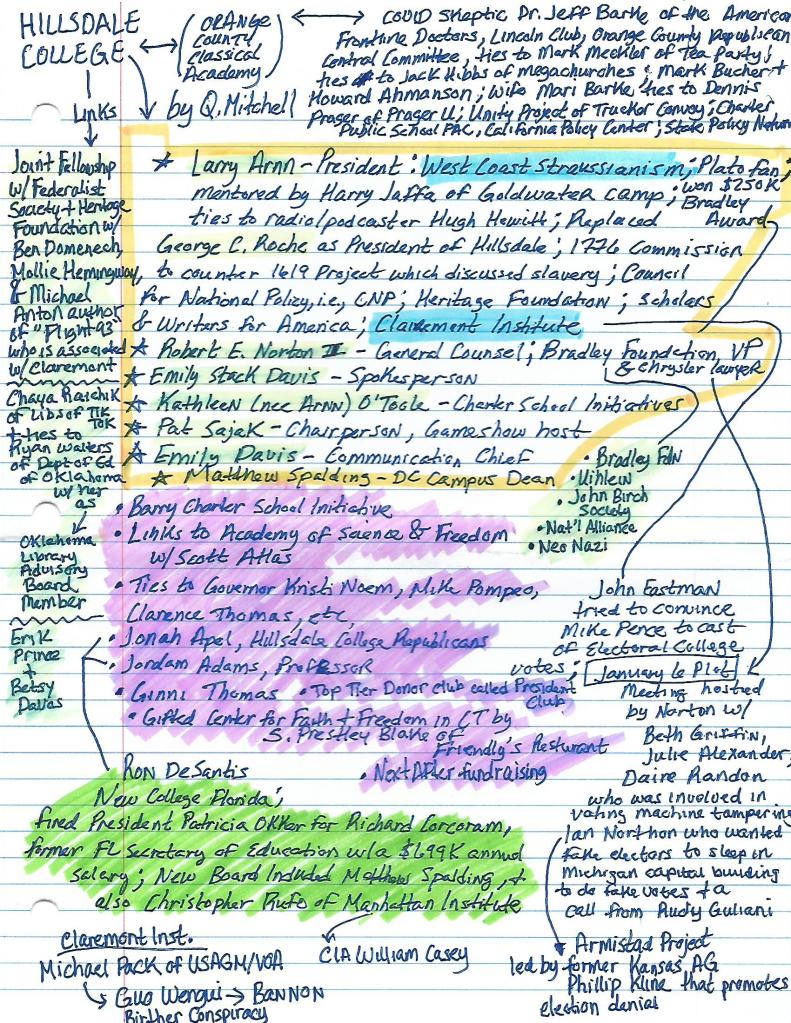 HILLSDALE
COLLEGE
(ORANGE
COUNTY
Classical
Academy)
by Q. Mitchell
COVID Skeptic Dr. Jeff Barke of the American
Frontline Doctors, Lincoln Club, Orange County Republican
Central Committee, ties to Mark Meckler of Tea Party;
ties to Jack Hibbs of megachurches; Mark Bucher +
Howard Ahmanson; Wife Mari Barke, ties to Dennis
Prager of Prager U; Unity Project of Trucker Convoy; Charter
Public School PAC, California Policy Center; State Policy Network
Links
Joint Fellowship
w/ Federalist
Society + Heritage
Foundation w/
Ben Domenech,
Mollie Hemingway,
& Michael
Anton author
of "Flight 93"
who is associated
w/ Claremont
Chaya Raichik
of Libs of TIK
TOK
+ ties to
Ryan Walters
of Dept of Ed
of Oklahoma
w/ her
as
Oklahoma
Library
Advisory
Board
Member
Erik
Prince
+
Betsy
DaVos
★ Larry Arnn - President: West Coast Straussianism; Plato fan;
mentored by Harry Jaffa of Goldwater camp; won $250K
Bradley
Award
ties to radio/podcaster Hugh Hewitt; Replaced
George C. Roche as President of Hillsdale; 1776 Commission
to counter 1619 Project which discussed slavery; Council
for National Policy, i.e., CNP; Heritage Foundation; Scholars
& Writers for America; Claremont Institute
★ Robert E. Norton II - General Counsel; Bradley Foundation, VP
& Chrysler lawyer
★ Emily Stack Davis - Spokesperson
★ Kathleen (nee Arnn) O'Toole - Charter School Initiatives
★ Pat Sajak - Chairperson, Gameshow host
★ Emily Davis - Communication Chief
★ Matthew Spalding - DC Campus Dean
• Bradley Fdn
• Uihlein
• John Birch
Society
• Nat'l Alliance
• Neo Nazi
• Barry Charter School Initiative
• Links to Academy of Science & Freedom
w/ Scott Atlas
• Ties to Governor Kristi Noem, Mike Pompeo,
Clarence Thomas, etc.
• Jonah Apel, Hillsdale College Republicans
• Jordan Adams, Professor
• Ginni Thomas • Top Tier Donor club called President
Club
• Gifted Center for Faith + Freedom in CT by
S. Prestley Blake of
Friendly's Resturant
• NextAfter fundraising
John Eastman
tried to convince
Mike Pence to cast
of Electoral College
votes; January 6 Plot
Meeting hosted
by Norton w/
Beth Griffin,
Julie Alexander,
Daire Randon
who was involved in
voting machine tampering
Ian Northon who wanted
fake electors to sleep in
Michigan capital building
to do fake votes + a
call from Rudy Guliani
Armistad Project
led by former Kansas AG
Phillip Kline that promotes
election denial
Ron DeSantis
New College Florida;
fired President Patricia Okker for Richard Corcoram,
former FL Secretary of Education w/a $699K annual
salary; New Board Included Matthew Spalding, +
also Christopher Rufo of Manhattan Institute
CIA William Casey
Claremont Inst.
Michael Pack of USAGM/VOA
Guo Wengui → BANNON
Birther Conspiracy